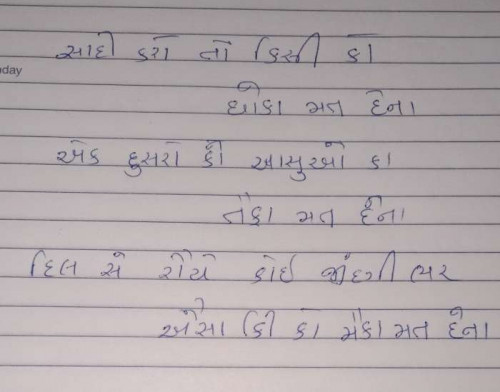 સાદી કરો તો કિસી કો
ધોકા મત દેના
એક દુસરો કી આસુઓ કા
તોફા મત દેના
દિલ સે રોયે કોઇ જીંદગી ભર
એસા કિ કો મોકા મત દેના